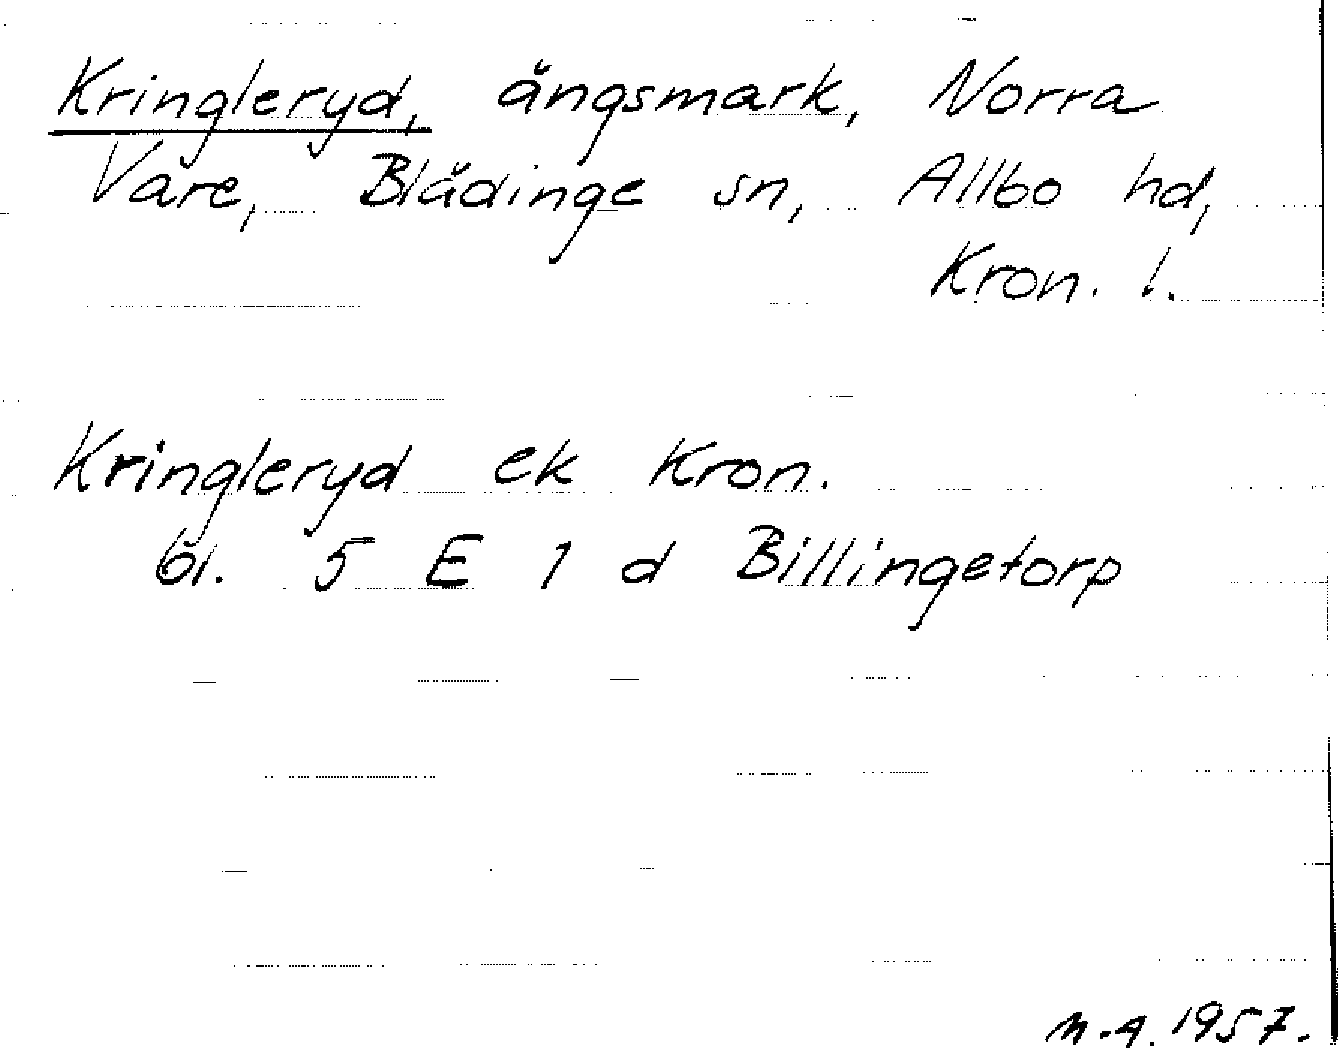 Kringleryd, ängsmark, Norra
Vare, Blädinge sn, Allbo hd,
Kron. l.
Kringleryd ek Kron.
bl. 5 E 1 d Billingetorp
1957.